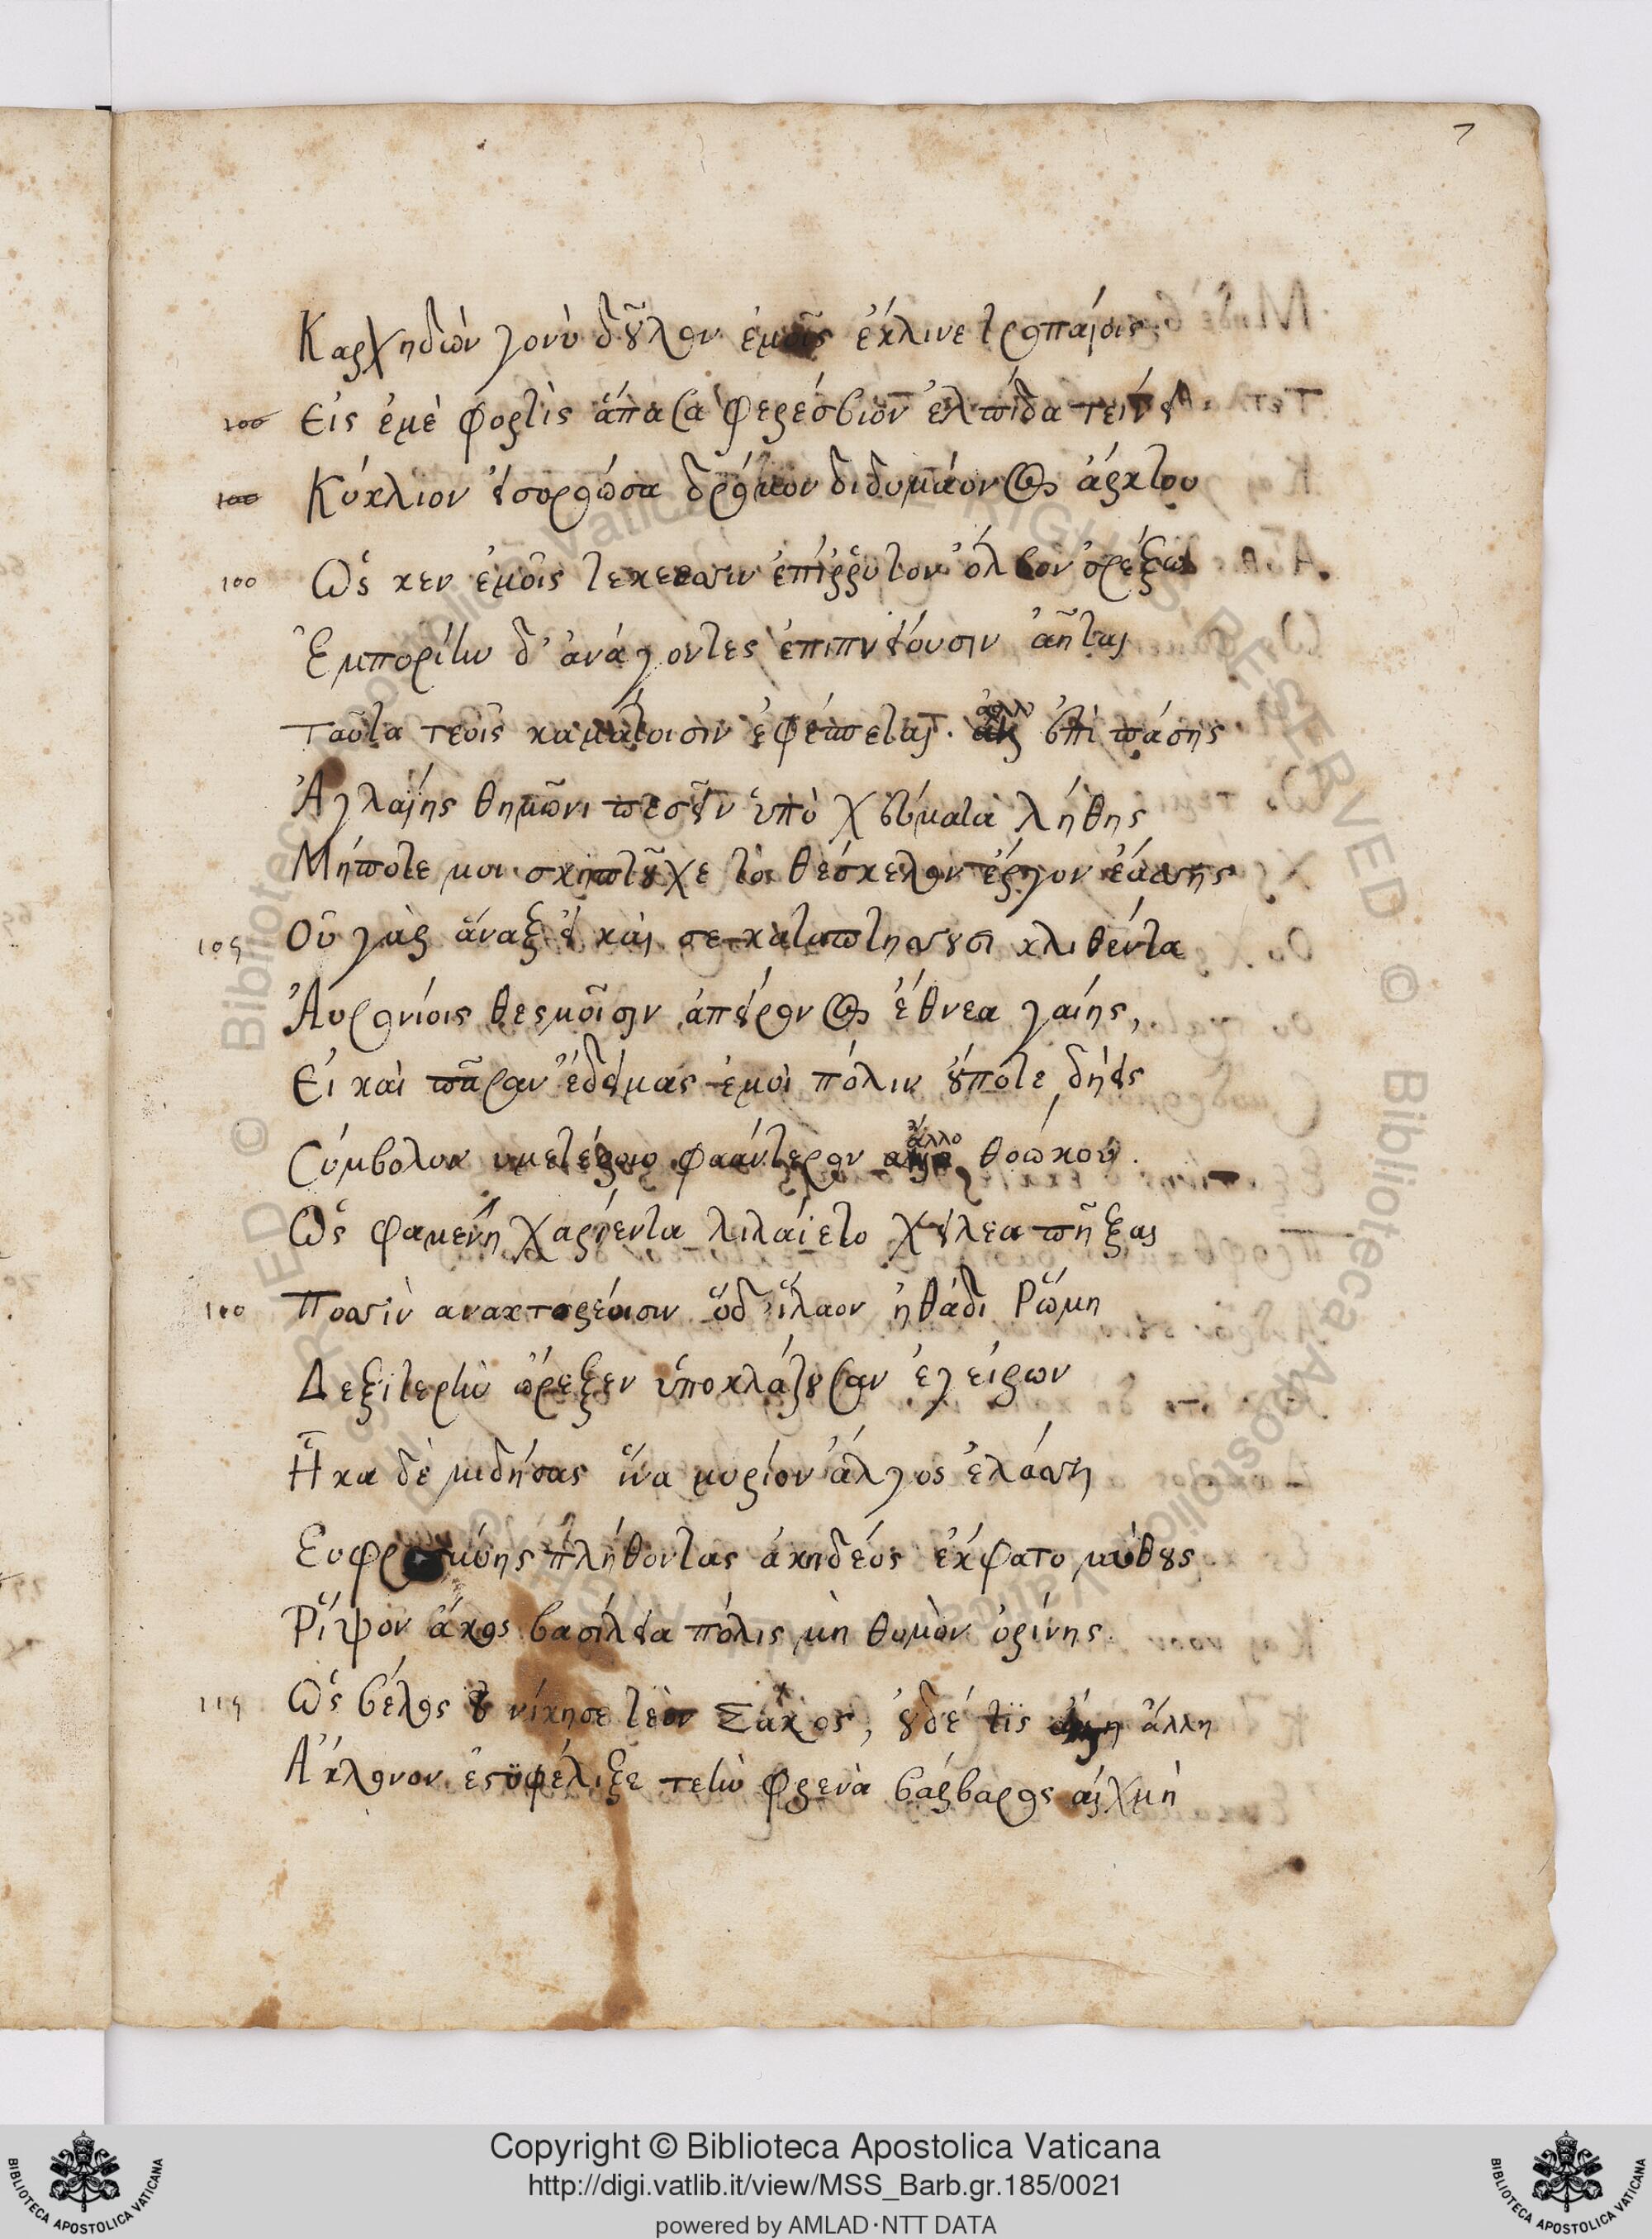 7
Καρχηδὼν γονὺ δοῦλον ἐμοῖς ἔκλινε τροπαίοις
100 Εἰς ἐμὲ φορτὶς ἅπασα φερέσβιον ἐλπίδα τείνει
100 Κύκλιον εἰσορόωσα δρόμον διδυμάονος ἄρκτου
100 Ὥς κεν ἐμοῖς τεκεεσσιν ἐπίρρυτον ὄλβον ὀρέξω
Ἐμπορίην δ' ἀνάγοντες ἐπιπνείουσιν ἀῆται
Ταῦτα τεοῖς καμάτοισιν ἐφέπεται. ἀλλ' ἐπὶ πάσης
Ἀγλαΐης θημῶνι πεσεῖν ὑπὸ χεύματα λήθης
Μήποτε μοι σκηπτοῦχε τὸ θέσκελον ἔργον ἐάσσης
105 Οὐ γὰρ ἄναξ εἰ καί σε καταπτήσσουσι κλιθέντα
Αὐσονίοις θεσμοῖσιν ἀπείρονος ἔθνεα γαίης,
Εἰ καὶ πᾶσαν ἔδειμας ἐμοὶ πόλιν οὔποτε δήεις
Σύμβολον ὑμετέροιο φαάντερον ἄλλο θοώκου.
Ὣς φαμένη χαρίεντα λιλαίετο χείλεα πῆξαι
110 Ποσσὶν ἀνακτορέοισιν ὅδ' ἵλαον ἠθάδι Ῥώμη
Δεξιτερὴν ὤρεξεν ὑποκλάζουσαν ἐγείρων
Ἦκα δὲ μειδήσας ἵνα μυρίον ἄλγος ἐλάσση
Ευφροσύνης πλήθοντας ἀκηδέος ἔκφατο μύθους
Ῥῖψον ἄχος βασίλεια πόλις μὴ θυμὸν ὀρίνης.
115 Ὡς βέλος οὐ νίκησε τεὸν Σάκος, οὐδέ τις ἄλλη
Ἄκλονον ἐστυφέλιξε τεὴν φρένα βάρβαρος αἰχμὴ
Copyright © Biblioteca Apostolica Vaticana
http://digi.vatlib.it/view/MSS_Barb.gr.185/0021
powered by AMLAD·NTT DATA